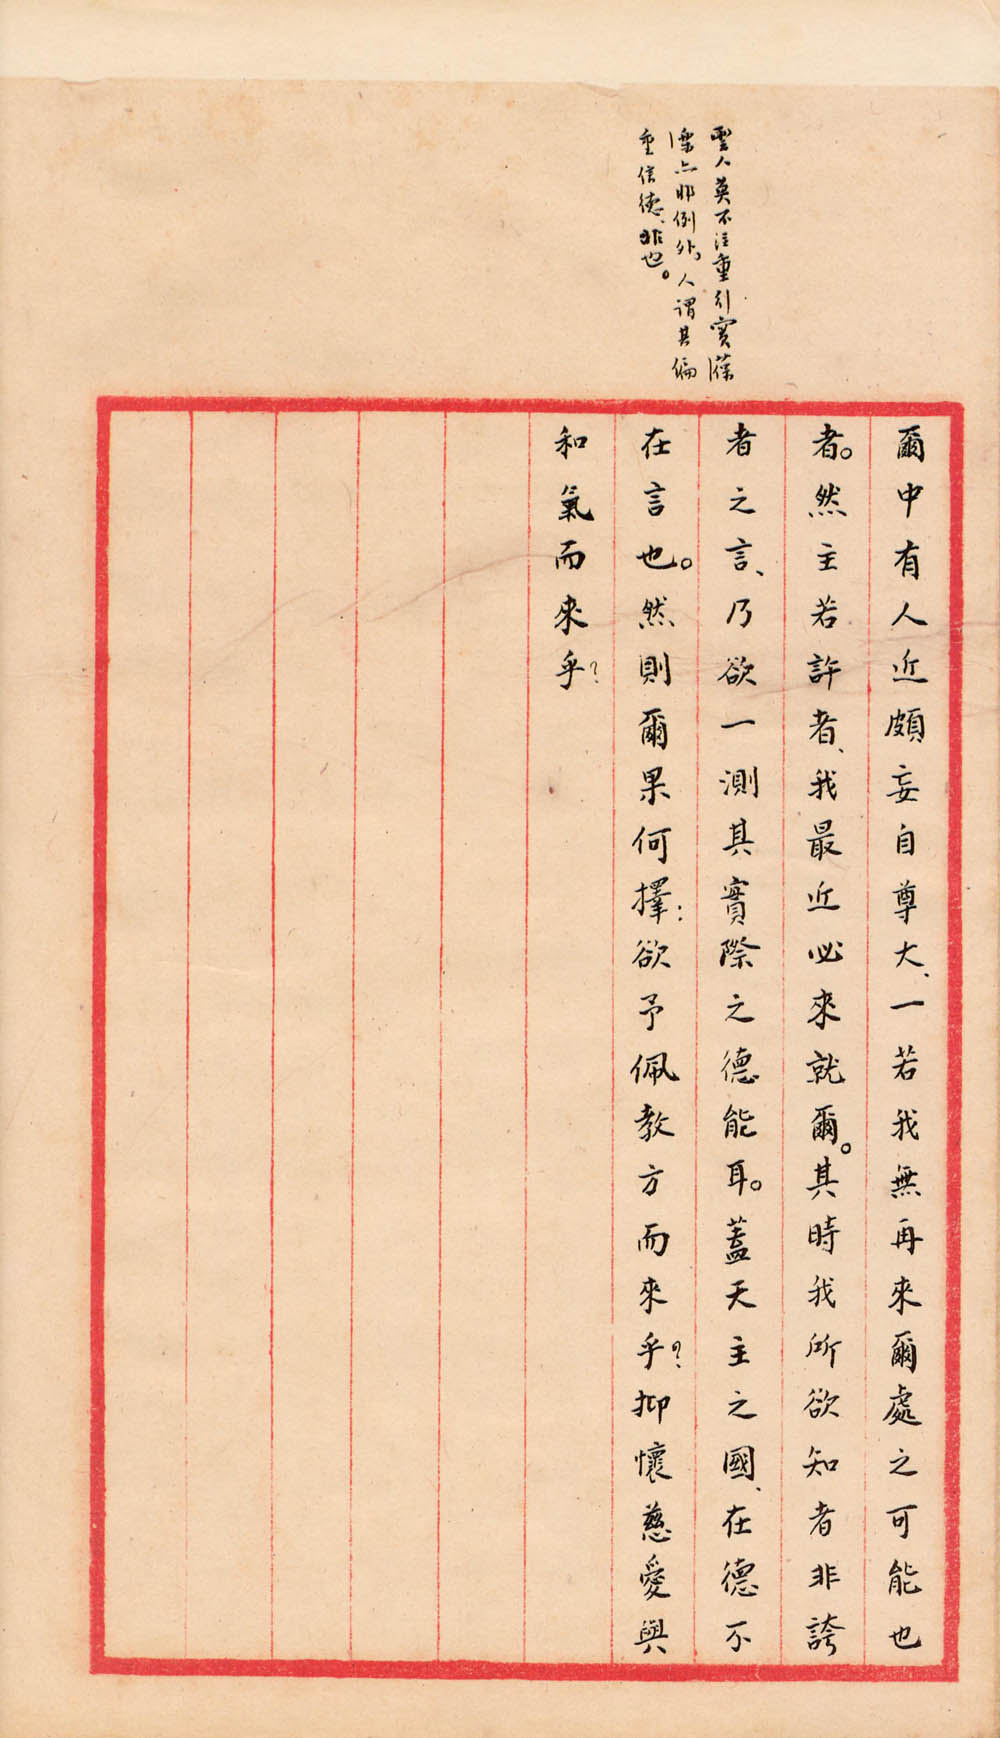 聖人莫不注重行實葆
樂亦非例外。人謂其偏
重信德、非也。
爾中有人近頗妄自尊大、一若我無再來爾處之可能也
者。然主若許者、我最近必來就爾。其時我所欲知者非誇
者之言、乃欲一測其實際之德能耳。蓋天主之國、在德不
在言也。然則爾果何擇:欲予佩教方而來乎?抑懷慈愛與
和氣而來乎?